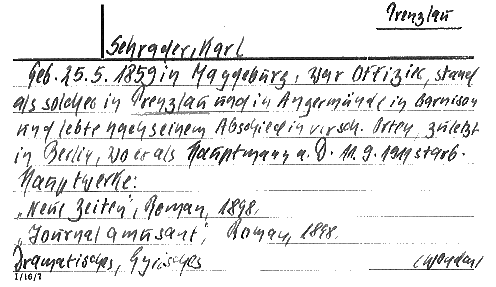 Prenzlau
Schrader, Karl
Geb. 25.5. 1859 in Magdeburg, war Offizier, stand
als solcher in Prenzlau und in Angermünde in Garnison
und lebte nach seinem Abschied in versch. Orten, zuletzt
in Berlin, wo er als Hauptmann a. D. 11.9.1911 starb.
Hauptwerke:
„Neue Zeiten", Roman, 1898.
„Journal amusant", Roman, 1898.
Dramatisches, Lyrisches
I/16/7